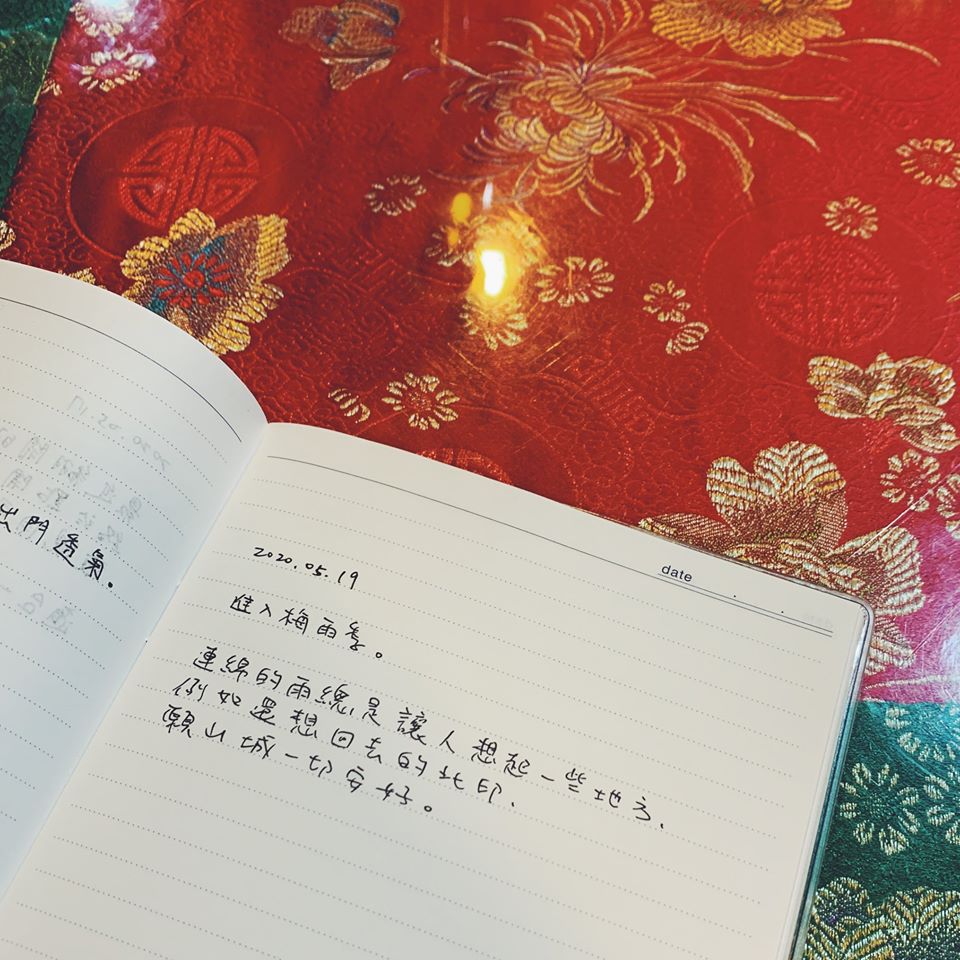 出門透氣。
date
2020.05.19
進入梅雨季。
連綿的雨總是讓人想起一些地方.
例如還想回去的北印.
願山城一切安好。